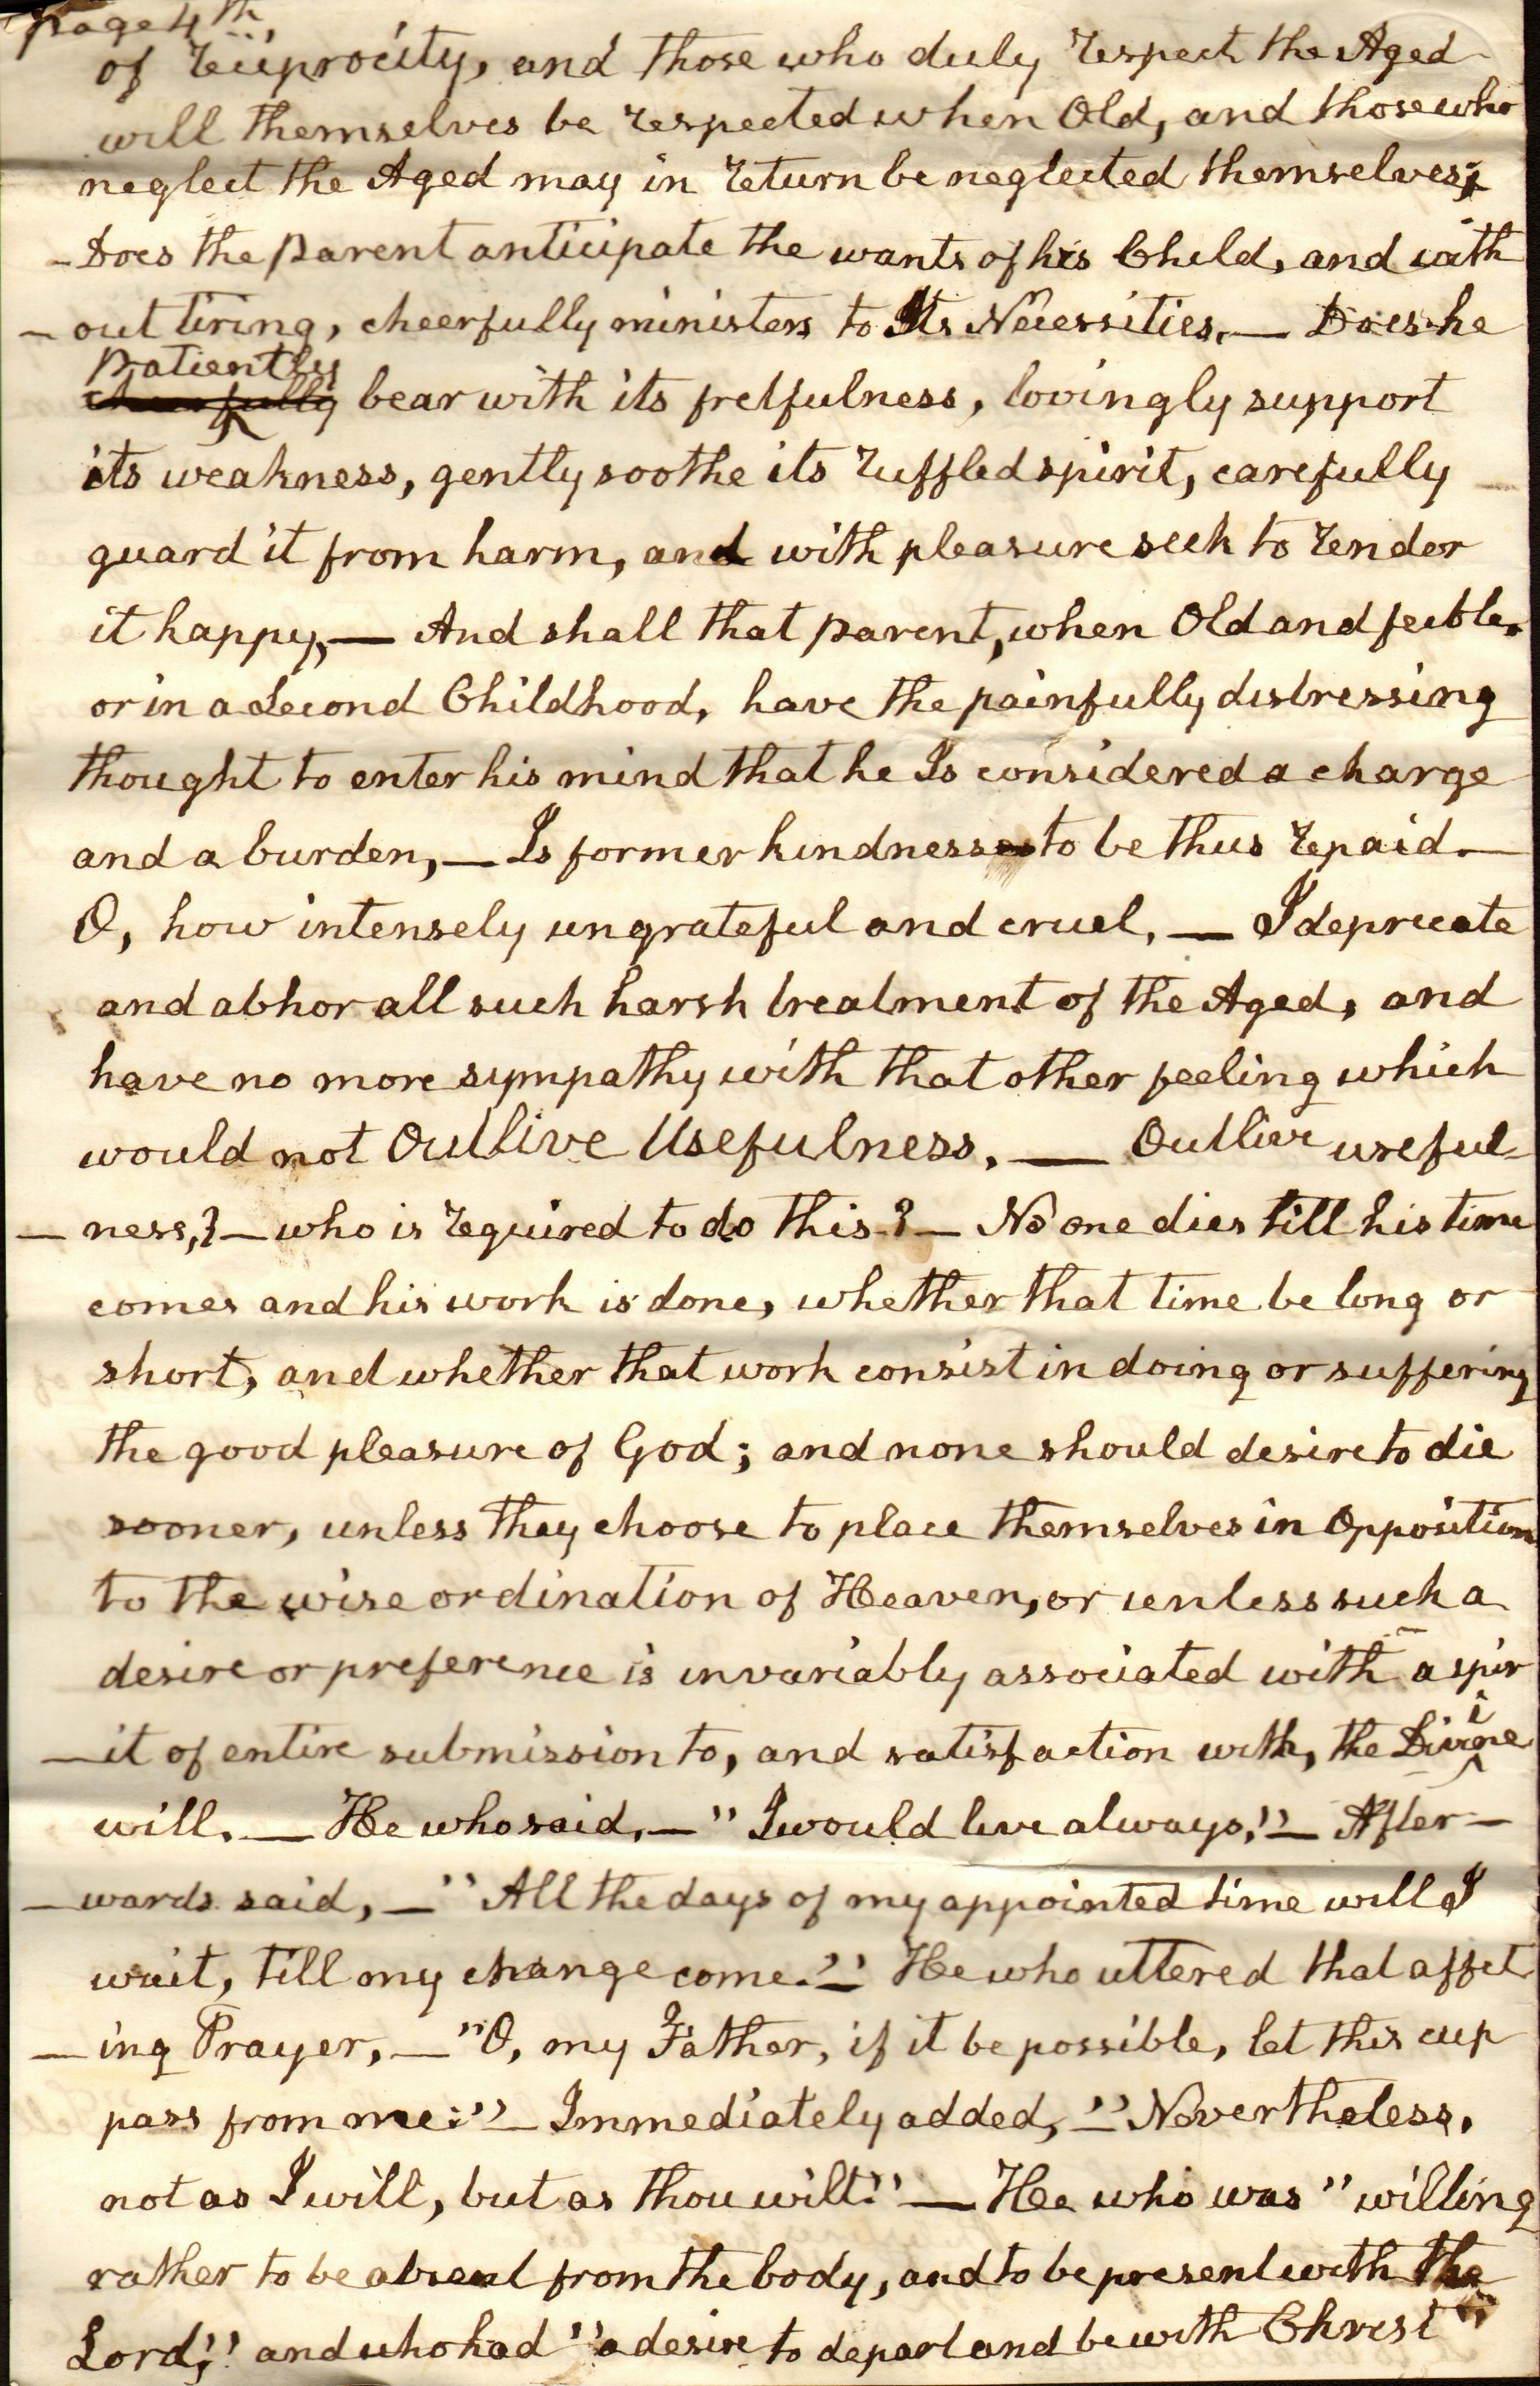 page 4th,
of reciprocity, and those who duly respect the Aged
will themselves be respected when Old, and those who
neglect the Aged may in return be neglected themselves;
- Does the parent anticipate the wants of his Child, and with
- out tiring, cheerfully ministers to Its Necessities. — Does he
patiently
cheerfully bear with its fretfulness, lovingly support
its weakness, gently soothe its ruffled spirit, carefully
guard it from harm, and with pleasure seek to render
it happy, — And shall that parent, when Old and feeble,
or in a Second Childhood, have the painfully distressing
thought to enter his mind that he Is considered a charge
and a burden, — Is former kindnesses to be thus repaid —
O, how intensely ungrateful and cruel, — I deprecate
and abhor all such harsh treatment of the Aged, and
have no more sympathy with that other feeling which
would not Outlive Usefulness. — Outlive useful-
- ness,? — who is required to do this? — No one dies till his time
comes and his work is done, whether that time be long or
short, and whether that work consist in doing or suffering
the good pleasure of God; and none should desire to die
sooner, unless they choose to place themselves in Opposition
to the wise ordination of Heaven, or unless such a
desire or preference is invariably associated with a spir
- it of entire submission to, and satisfaction with, the Divine
will. — He who said, — "I would live always," — After -
- wards said, — "All the days of my appointed time will I
wait, till my change come." — He who uttered that affect
- ing Prayer, — "O, my Father, if it be possible, let this cup
pass from me:" — Immediately added, — "Nevertheless,
not as I will, but as thou wilt." — He who was "willing
rather to be absent from the body, and to be present with the
Lord;" and who had "a desire to depart and be with Christ"